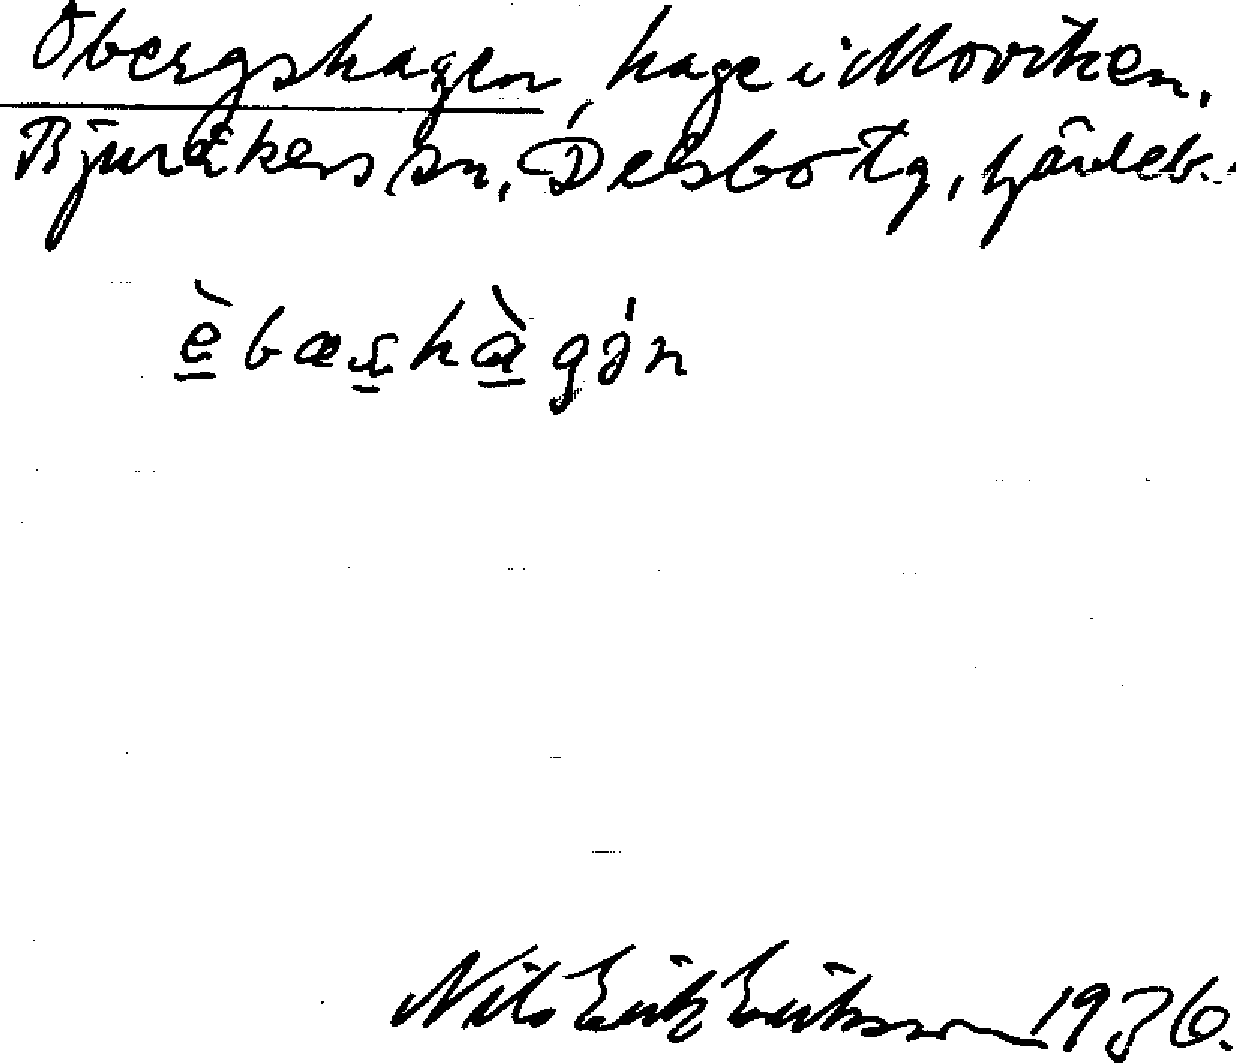 Öbergshagen, hage i Moviken,
Bjuråkers sn, Delsbo tg, Gävleb.
è̲bæs̲hà̲gə́n
Nils Erik Eriksson 1936.